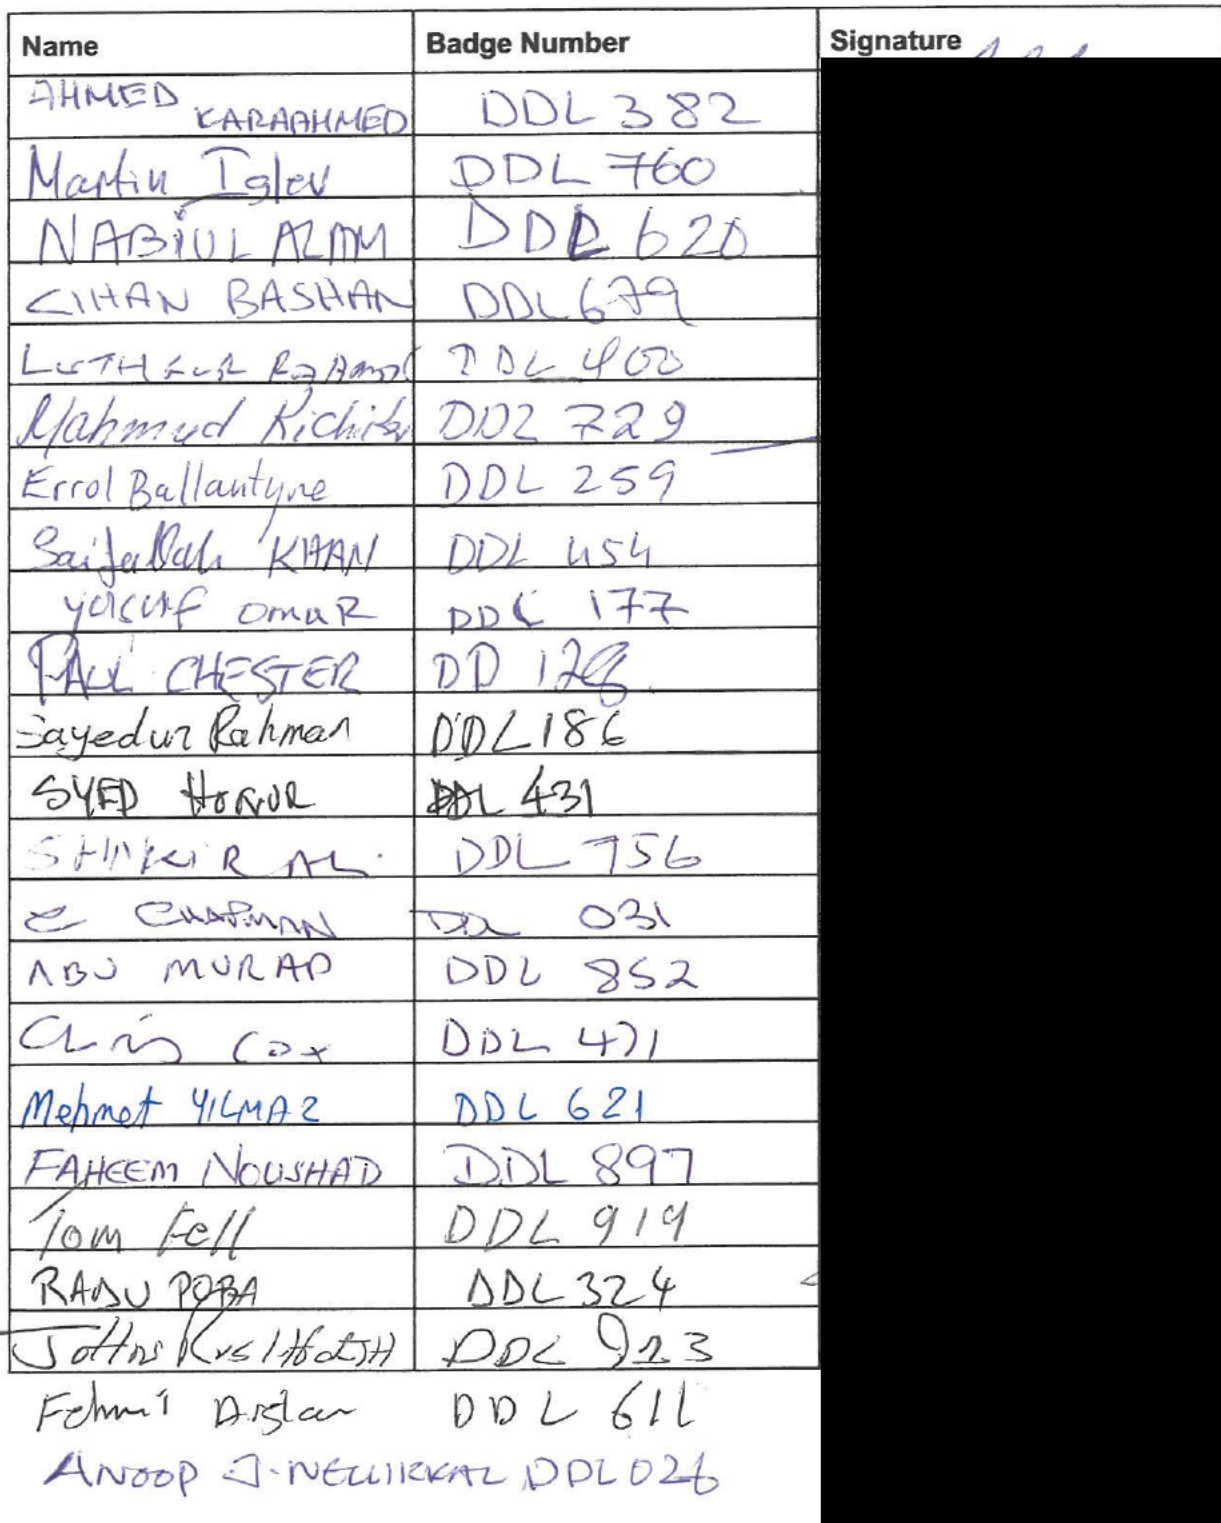 Name Badge Number Signature
AHMED KARAAHMED DDL 382
Martin Iglev DDL 760
NABIUL ALAM DDL 620
CIHAN BASHAN DDL 679
LUTHFUR DDL 400
Mahmud DDL 729
Errol Ballantyne DDL 259
Saifullah KHAN DDL 454
Yusuf Omar DDL 177
PAUL CHESTER DD 128
Sayedur Rahman DDL 186
SYED DDL 431
SHAKIR ALI DDL 756
C CHAPMAN DDL 031
ABU MURAD DDL 852
Chris Cox DDL 471
Mehmet YILMAZ DDL 621
FAHEEM NOUSHAD DDL 897
Tom Fell DDL 919
RADU POPA DDL 324
DDL 923
Fehmi Arslan DDL 611
ANOOP J. DDL 026